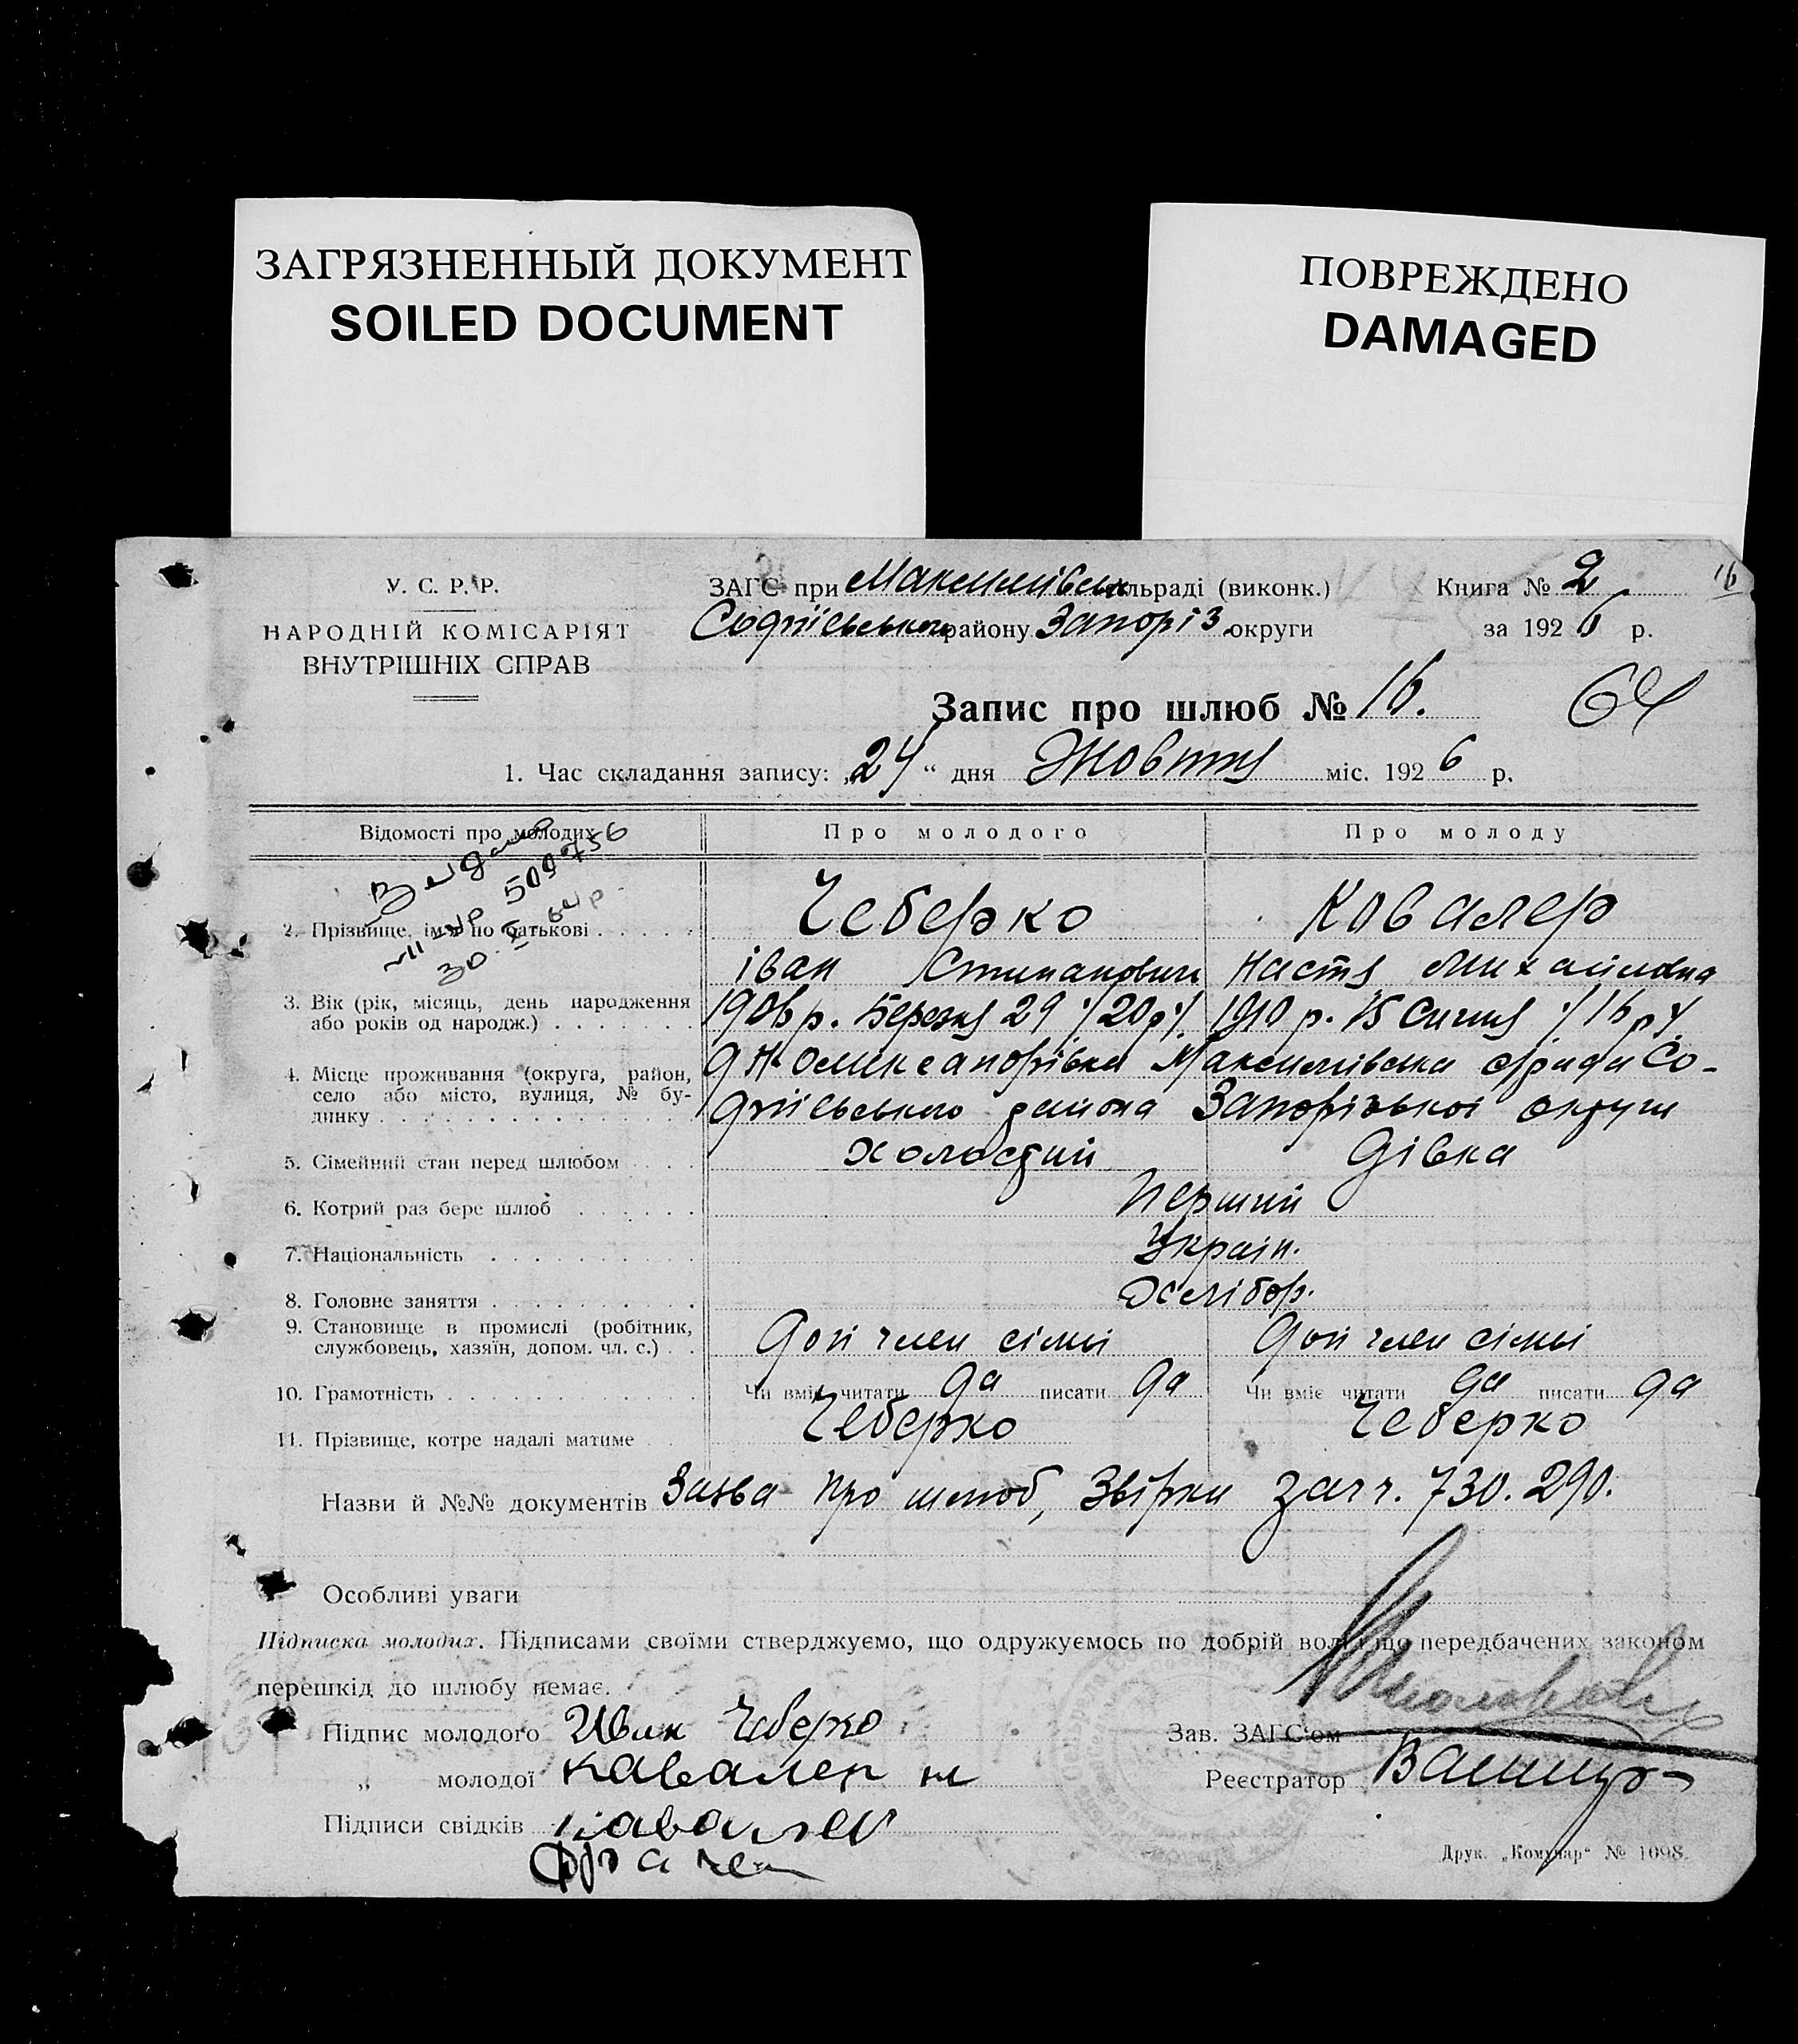 ЗАГРЯЗНЕННЫЙ ДОКУМЕНТ
SOILED DOCUMENT
ПОВРЕЖДЕНО
DAMAGED
У. С. Р. Р.
НАРОДНІЙ КОМІСАРІЯТ
ВНУТРІШНІХ СПРАВ
ЗАГС при Максимівськ ільраді (виконк.)
Софіївського району Запоріз. округи
Книга № 2
16
за 1926 р.
Запис про шлюб № 16.
64
1. Час складання запису: „24“ дня Жовтня міс. 1926 р.
Відомості про молодих
Про молодого
Про молоду
2. Прізвище, ім'я по батькові
Чеберко
Ковалер
Іван Степанович
Настя Михайловна
3. Вік (рік, місяць, день народження або років од народж.)
1906 р. Березня 29 /20 р/
1910 р. 15 Січня /16 р/
4. Місце проживання (округа, район, село або місто, вулиця, № будинку
Максимівська с/ради Со-
фіївського района Запорізької округи
5. Сімейний стан перед шлюбом
холостий
дівка
6. Котрий раз бере шлюб
Перший
7. Національність
Україн.
8. Головне заняття
Хлібор.
9. Становище в промислі (робітник, службовець, хазяїн, допом. чл. с.)
доп член сімьї
доп член сімьї
10. Грамотність
Чи вміє читати да писати да
Чи вміє читати да писати да
11. Прізвище, котре надалі матиме
Чеберко
Чеберко
Назви й №№ документів Заява про шлюб, Звірка 730. 290.
Особливі уваги
Підписка молодих. Підписами своїми стверджуємо, що одружуємось по добрій волі і що передбачених законом
перешкід до шлюбу немає.
Підпис молодого Иван Чеберко
„ молодої Кавалер н
Підписи свідків Кавалер
Зав. ЗАГС'ом
Реєстратор
Друк. „Комунар“ № 1098.